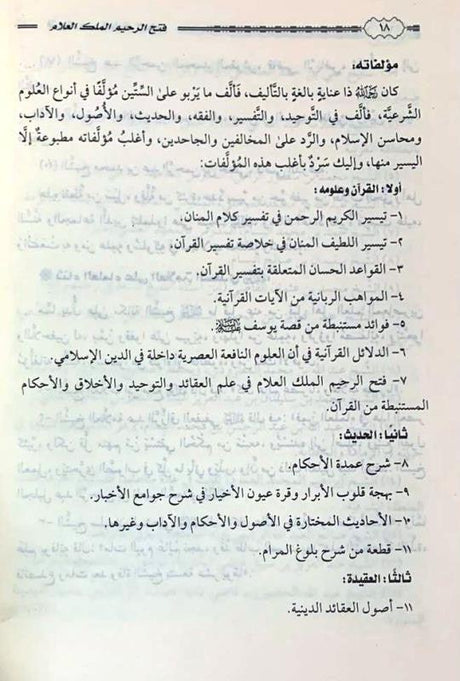 ١٨
فتح الرحيم الملك العلام
مؤلفاته:
كان ﵀ ذا عنايةٍ بالغةٍ بالتَّأليف، فَأَلَّف ما يَرْبو علىٰ السِّتِّين مُؤَلَّفًا في أنواع العُلوم
الشَّرعيَّة، فأَلَّف في التَّوحيد، والتَّفسير، والفقه، والحديث، والأُصُول، والآداب،
ومحاسن الإسلام، والرَّد علىٰ المخالفين والجاحدين، وأغلبُ مؤلَّفاته مطبوعةٌ إلَّا
اليسير منها، وإليك سَرْدٌ بأغلب هذه المُؤلَّفات:
أولًا: القرآن وعلومه:
١- تيسير الكريم الرحمن في تفسير كلام المنان.
٢- تيسير اللطيف المنان في خلاصة تفسير القرآن.
٣- القواعد الحسان المتعلقة بتفسير القرآن.
٤- المواهب الربانية من الآيات القرآنية.
٥- فوائد مستنبطة من قصة يوسف
٦- الدلائل القرآنية في أن العلوم النافعة العصرية داخلة في الدين الإسلامي.
٧- فتح الرحيم الملك العلام في علم العقائد والتوحيد والأخلاق والأحكام
المستنبطة من القرآن.
ثانيًا: الحديث:
٨- شرح عمدة الأحكام.
٩- بهجة قلوب الأبرار وقرة عيون الأخيار في شرح جوامع الأخبار.
١٠- الأحاديث المختارة في الأصول والأحكام والآداب وغيرها.
١١- قطعة من شرح بلوغ المرام.
ثالثًا: العقيدة:
١١- أصول العقائد الدينية.